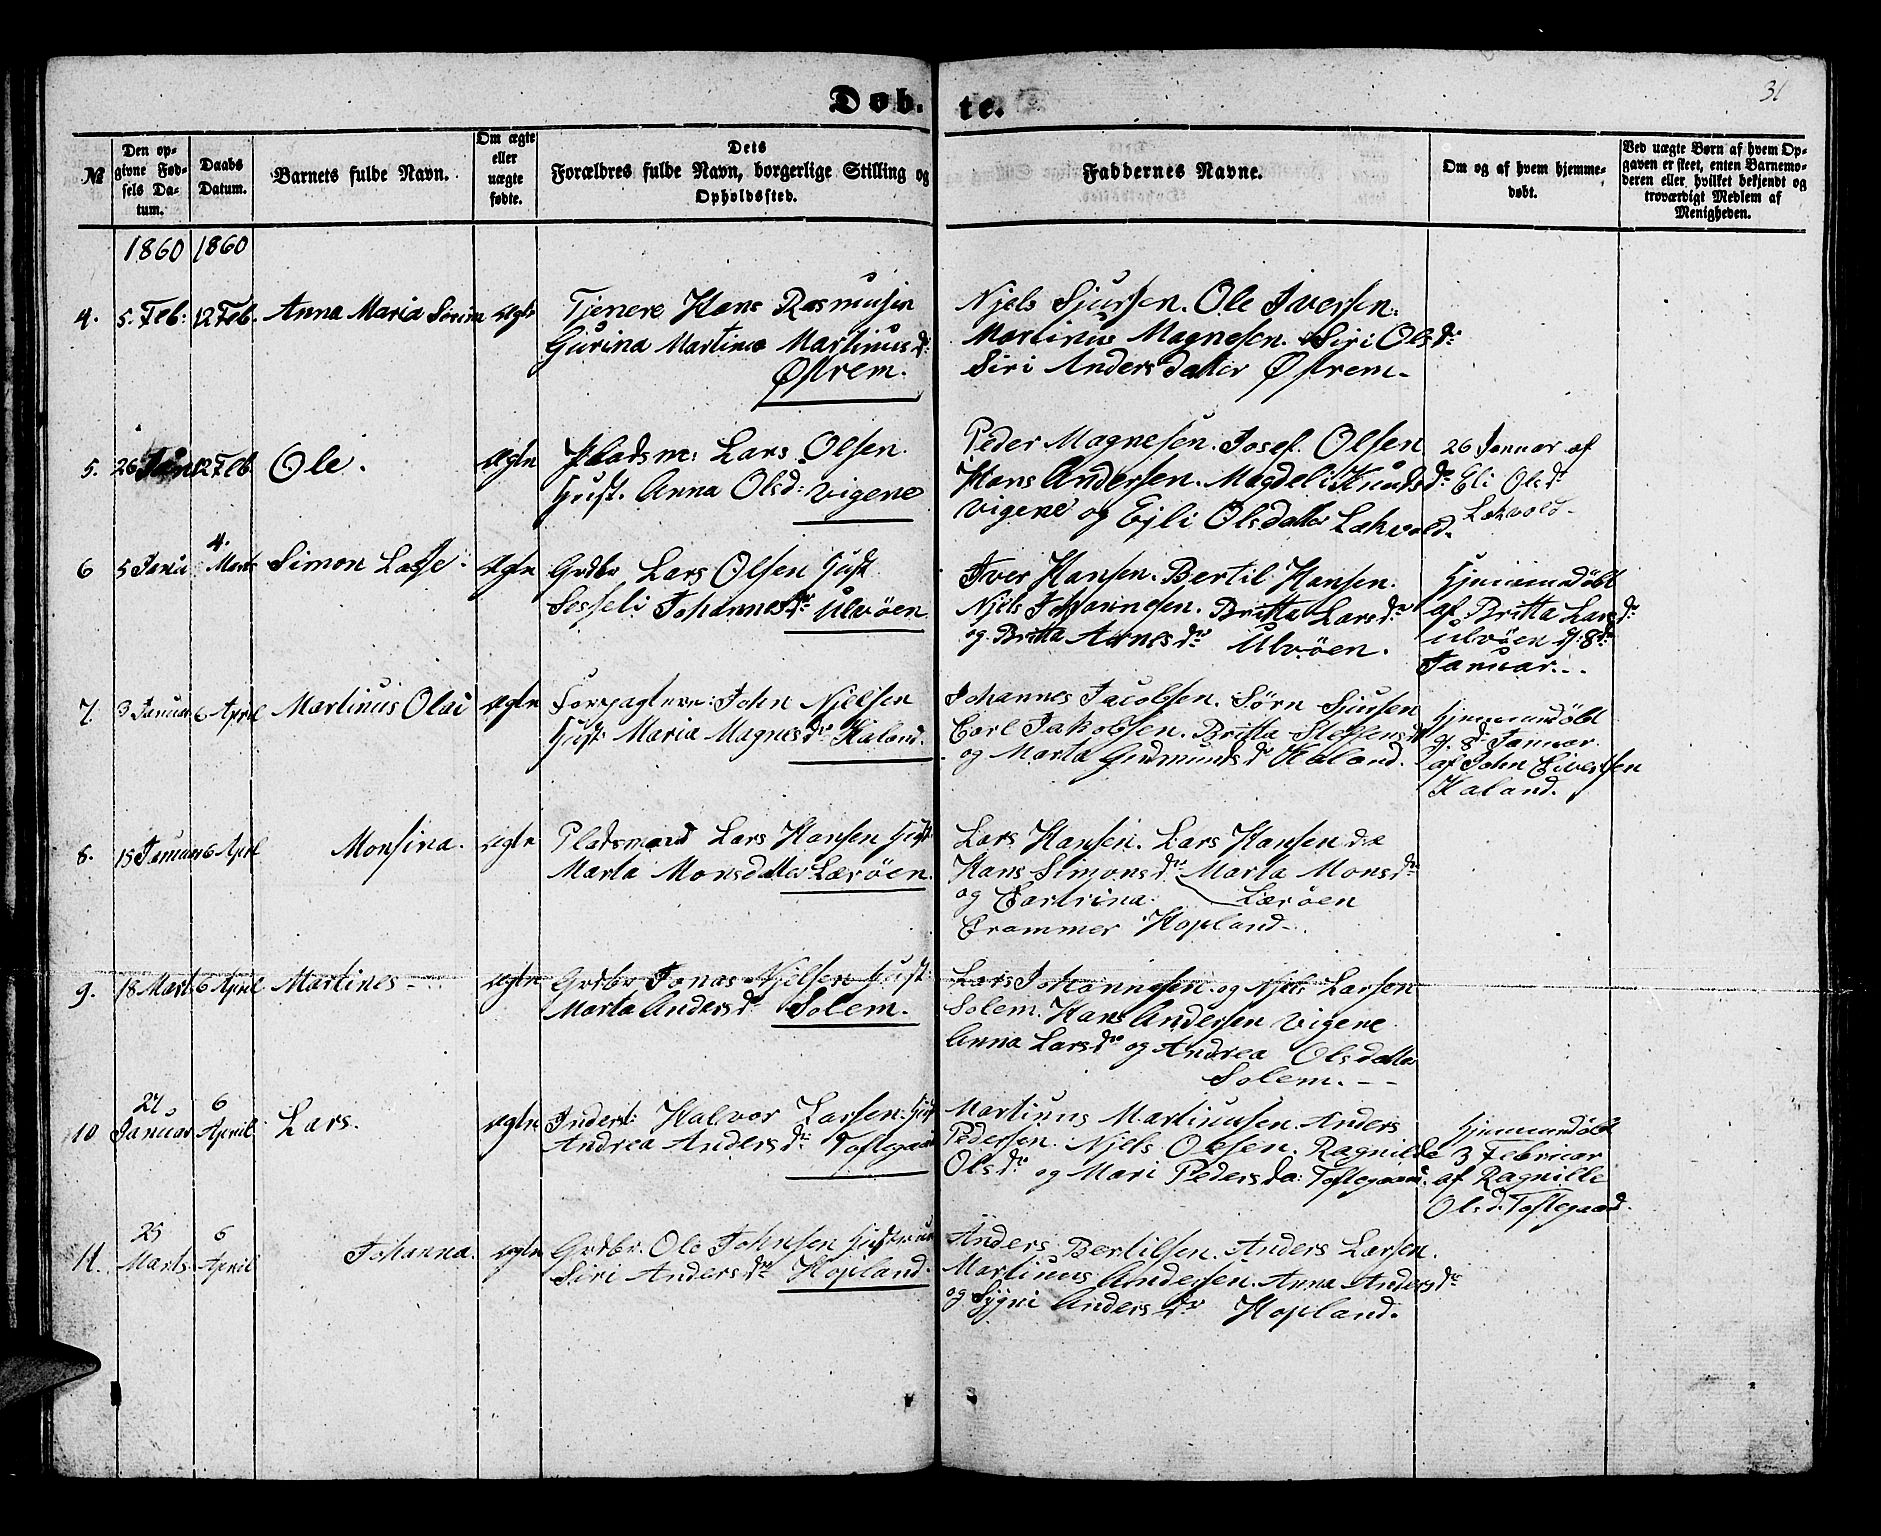 31
Døb. te.
№
Den opgivne Fødsels Datum.
Daabs Datum.
Barnets fulde Navn.
Om ægte eller uægte fødte.
Dets Forældres fulde Navn, borgerlige Stilling og Opholdssted.
Faddernes Navne.
Om og af hvem hjemmedøbt.
Ved uægte Børn af hvem Opgaven er skeet, enten Barnemoderen eller hvilket bekjendt og troværdigt Medlem af Menigheden.
1860 1860
4. 5. Feb: 12 Feb. Anna Maria Sevrin ægte
Tjenere Hans Rasmusen
Gurina Martina Martinusd:
Østrem.
Njels Sjursen. Ole Iversen.
Martinus Magnesen. Siri Olsdr
Siri Andersdatter Østrem.
5. 26 Jan 12 Feb Ole. ægte
Pladsm: Lars Olsen.
Hust. Anna Olsd: Vigene
Peder Magnesen. Josef. Olsen
Hans Andersen. Magdeli Knudsdr
Vigene og Ejli Olsdatter Lækvold.
26 Januar af
Eli Olsdr
Lekvold.
6 5 Janu 4. Marts Simon Lasse ægte
Grdbr Lars Olsen Hust
Sesseli Johannesdr Ulvøen
Iver Hansen. Bertil Hansen.
Njels Johannesen. Britta Larsdr
og Britta Arnesdr Ulvøen.
Hjemmedøbt
af Britta Larsdr
Ulvøen d: 8de
Januar.
7. 3 Januar 6 April Martinus Olai ægte
Forpagtere: John Njelsen
Hust. Maria Magnesdr Haland.
Johannes Jacobsen. Sørn Sjursen
Carl Jakobsen. Britta Steffensd
og Marta Gudmundsdr Haland.
Hjemmedøbt
d. 8de Januar
af John Eivertsen
Haland.
8. 15 Januar 6 Aprl Monsina. ægte
Pladsmand Lars Hansen Hust
Marta Monsdatter Lærøen.
Lars Hansen. Lars Hansen
Hans Simonsdr Marta Monsdr
og Cartrina Lærøen
Crammer Hopland.
9. 18 Mart 6 April Martines ægte
Grdbr Jonas Njelsen Hust.
Marta Andersdr Solem.
Lars Johannesen. og Njels Larsen
Solem. Hans Andersen Vigene
Anna Larsdr og Andrea Olsdatter
Solem.
10 27 Januar 6 April Lars. ægte
Inderst: Halvor Larsen Hust
Andrea Andersdr Toftegaar
Martinus Martinusen. Anders
Pedersen. Njels Olsen. Ragnilde
Olsdr og Mari Pedersda: Toftegaard.
Hjemmedøbt
3 Februar
af Ragnille
Olsd. Toftegaard.
11. 25 Marts 6 April Johanna. ægte
Grdbr. Ole Johnsen Hustrue
Siri Andersdr Hopland.
Anders Bertilsen. Anders Larsen.
Martinus Andersen. Anna Andersdr
og Sygni Andersdr Hopland.